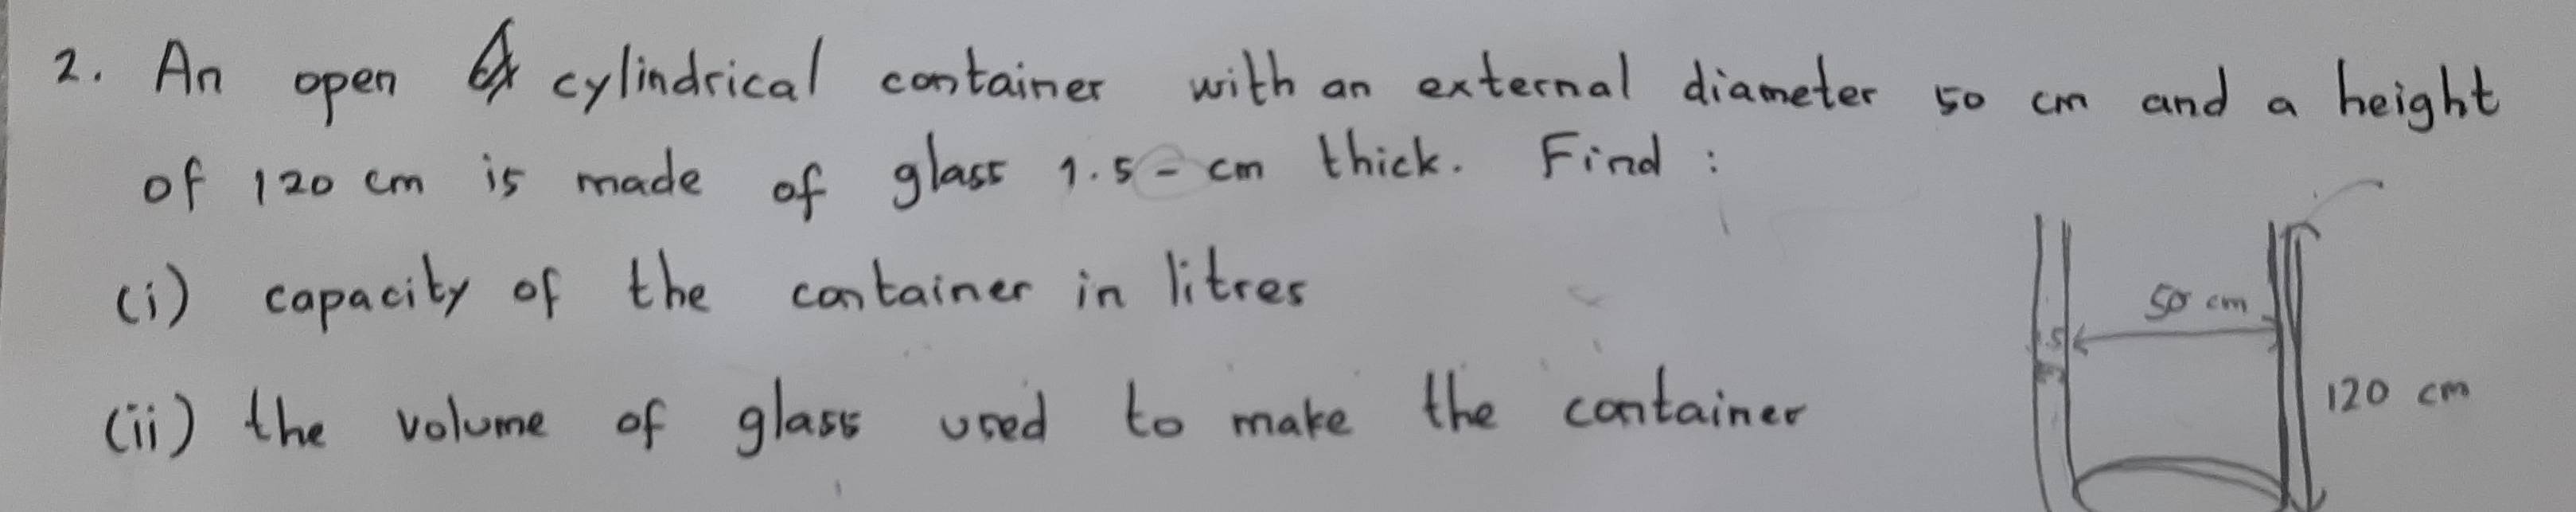 2. An open cylindrical container with an external diameter 50 cm and a height
of 120 cm is made of glass 1.5 - cm thick. Find :
(i) capacity of the container in litres
50 cm
(ii) the volume of glass used to make the container
120 cm